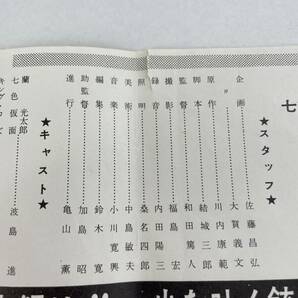 七
★スタッフ★
企画……佐藤昌弘
大賀義文
原作……川内康範
脚本……結城三郎
監督……和田篤人
撮影……福島宏
録音……内田陽三
照明……桑名四郎
美術……中島敏夫
音楽……小川寛興
編集……鈴木寛
助監督……加島昭
進行……亀山薫
★キャスト★
蘭光太郎
七色仮面……波島進